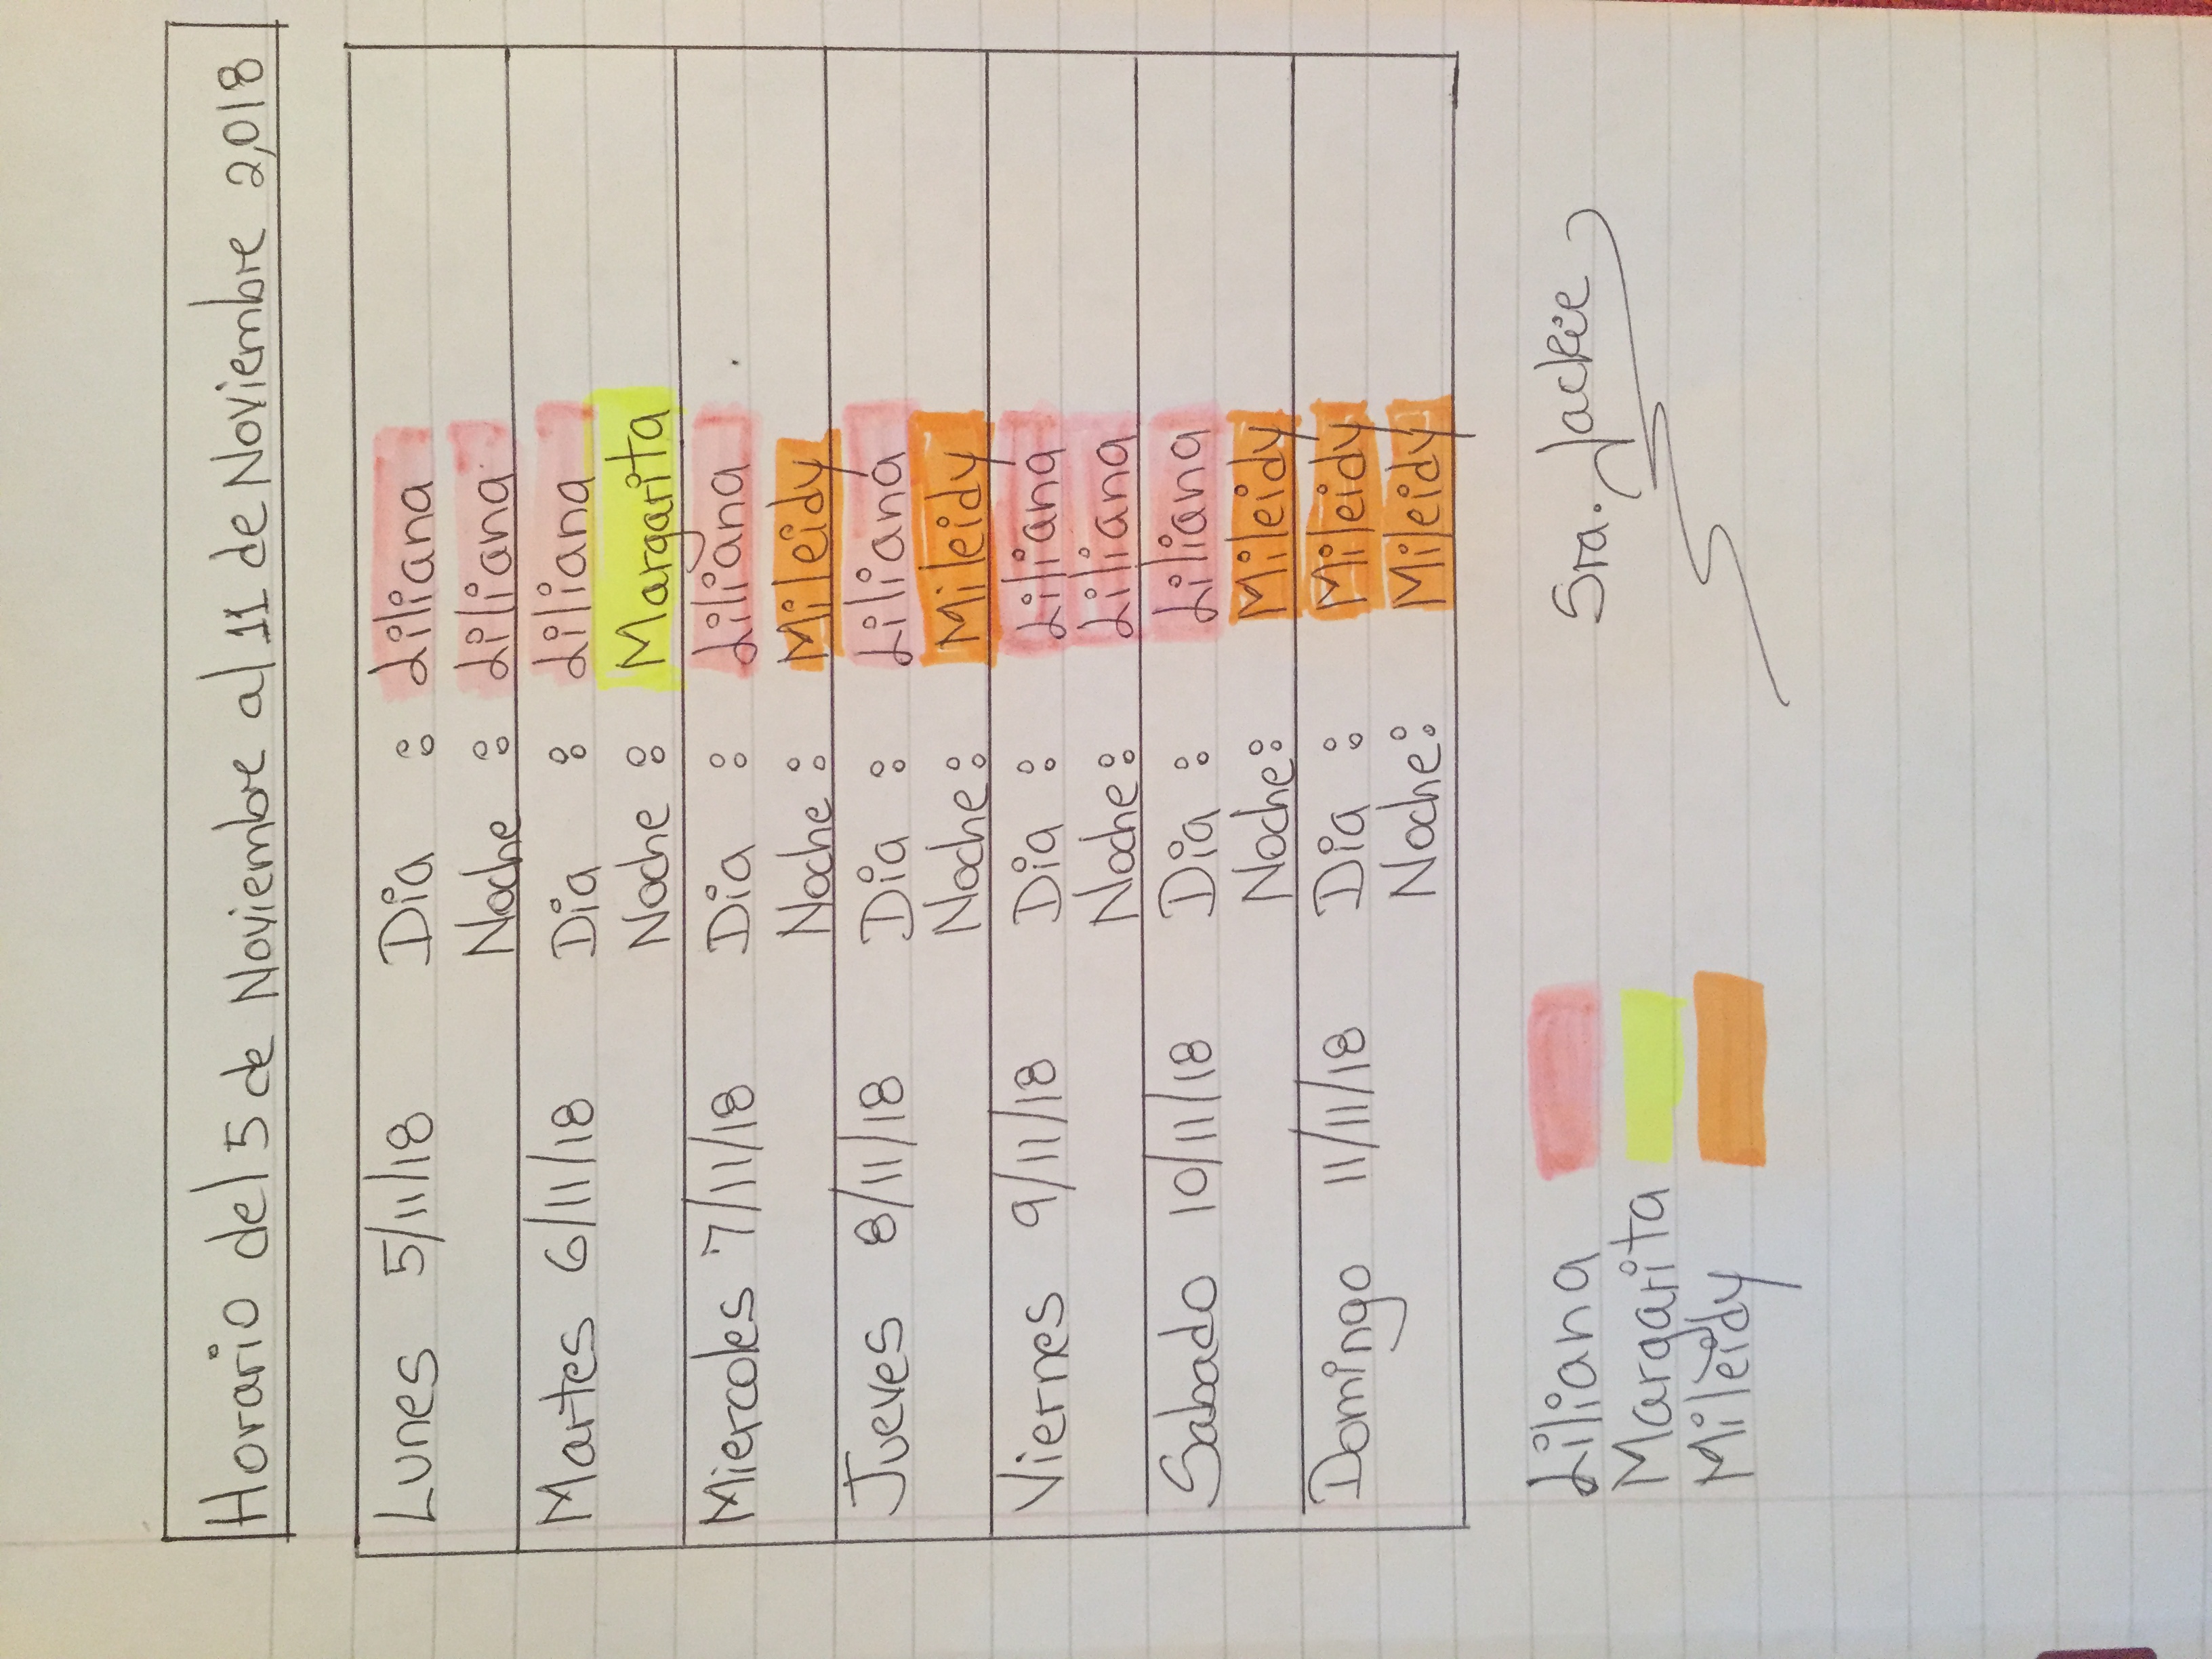 Horario del 5 de Noviembre al 11 de Noviembre 2,018
Lunes 5/11/18 Dia : Liliana
Noche : Liliana
Martes 6/11/18 Dia : Liliana
Noche : Margarita
Miercoles 7/11/18 Dia : Liliana
Noche : Mileidy
Jueves 8/11/18 Dia : Liliana
Noche : Mileidy
Viernes 9/11/18 Dia : Liliana
Noche : Liliana
Sabado 10/11/18 Dia : Liliana
Noche : Mileidy
Domingo 11/11/18 Dia : Mileidy
Noche : Mileidy
Liliana
Margarita
Mileidy
Sra. Jackie